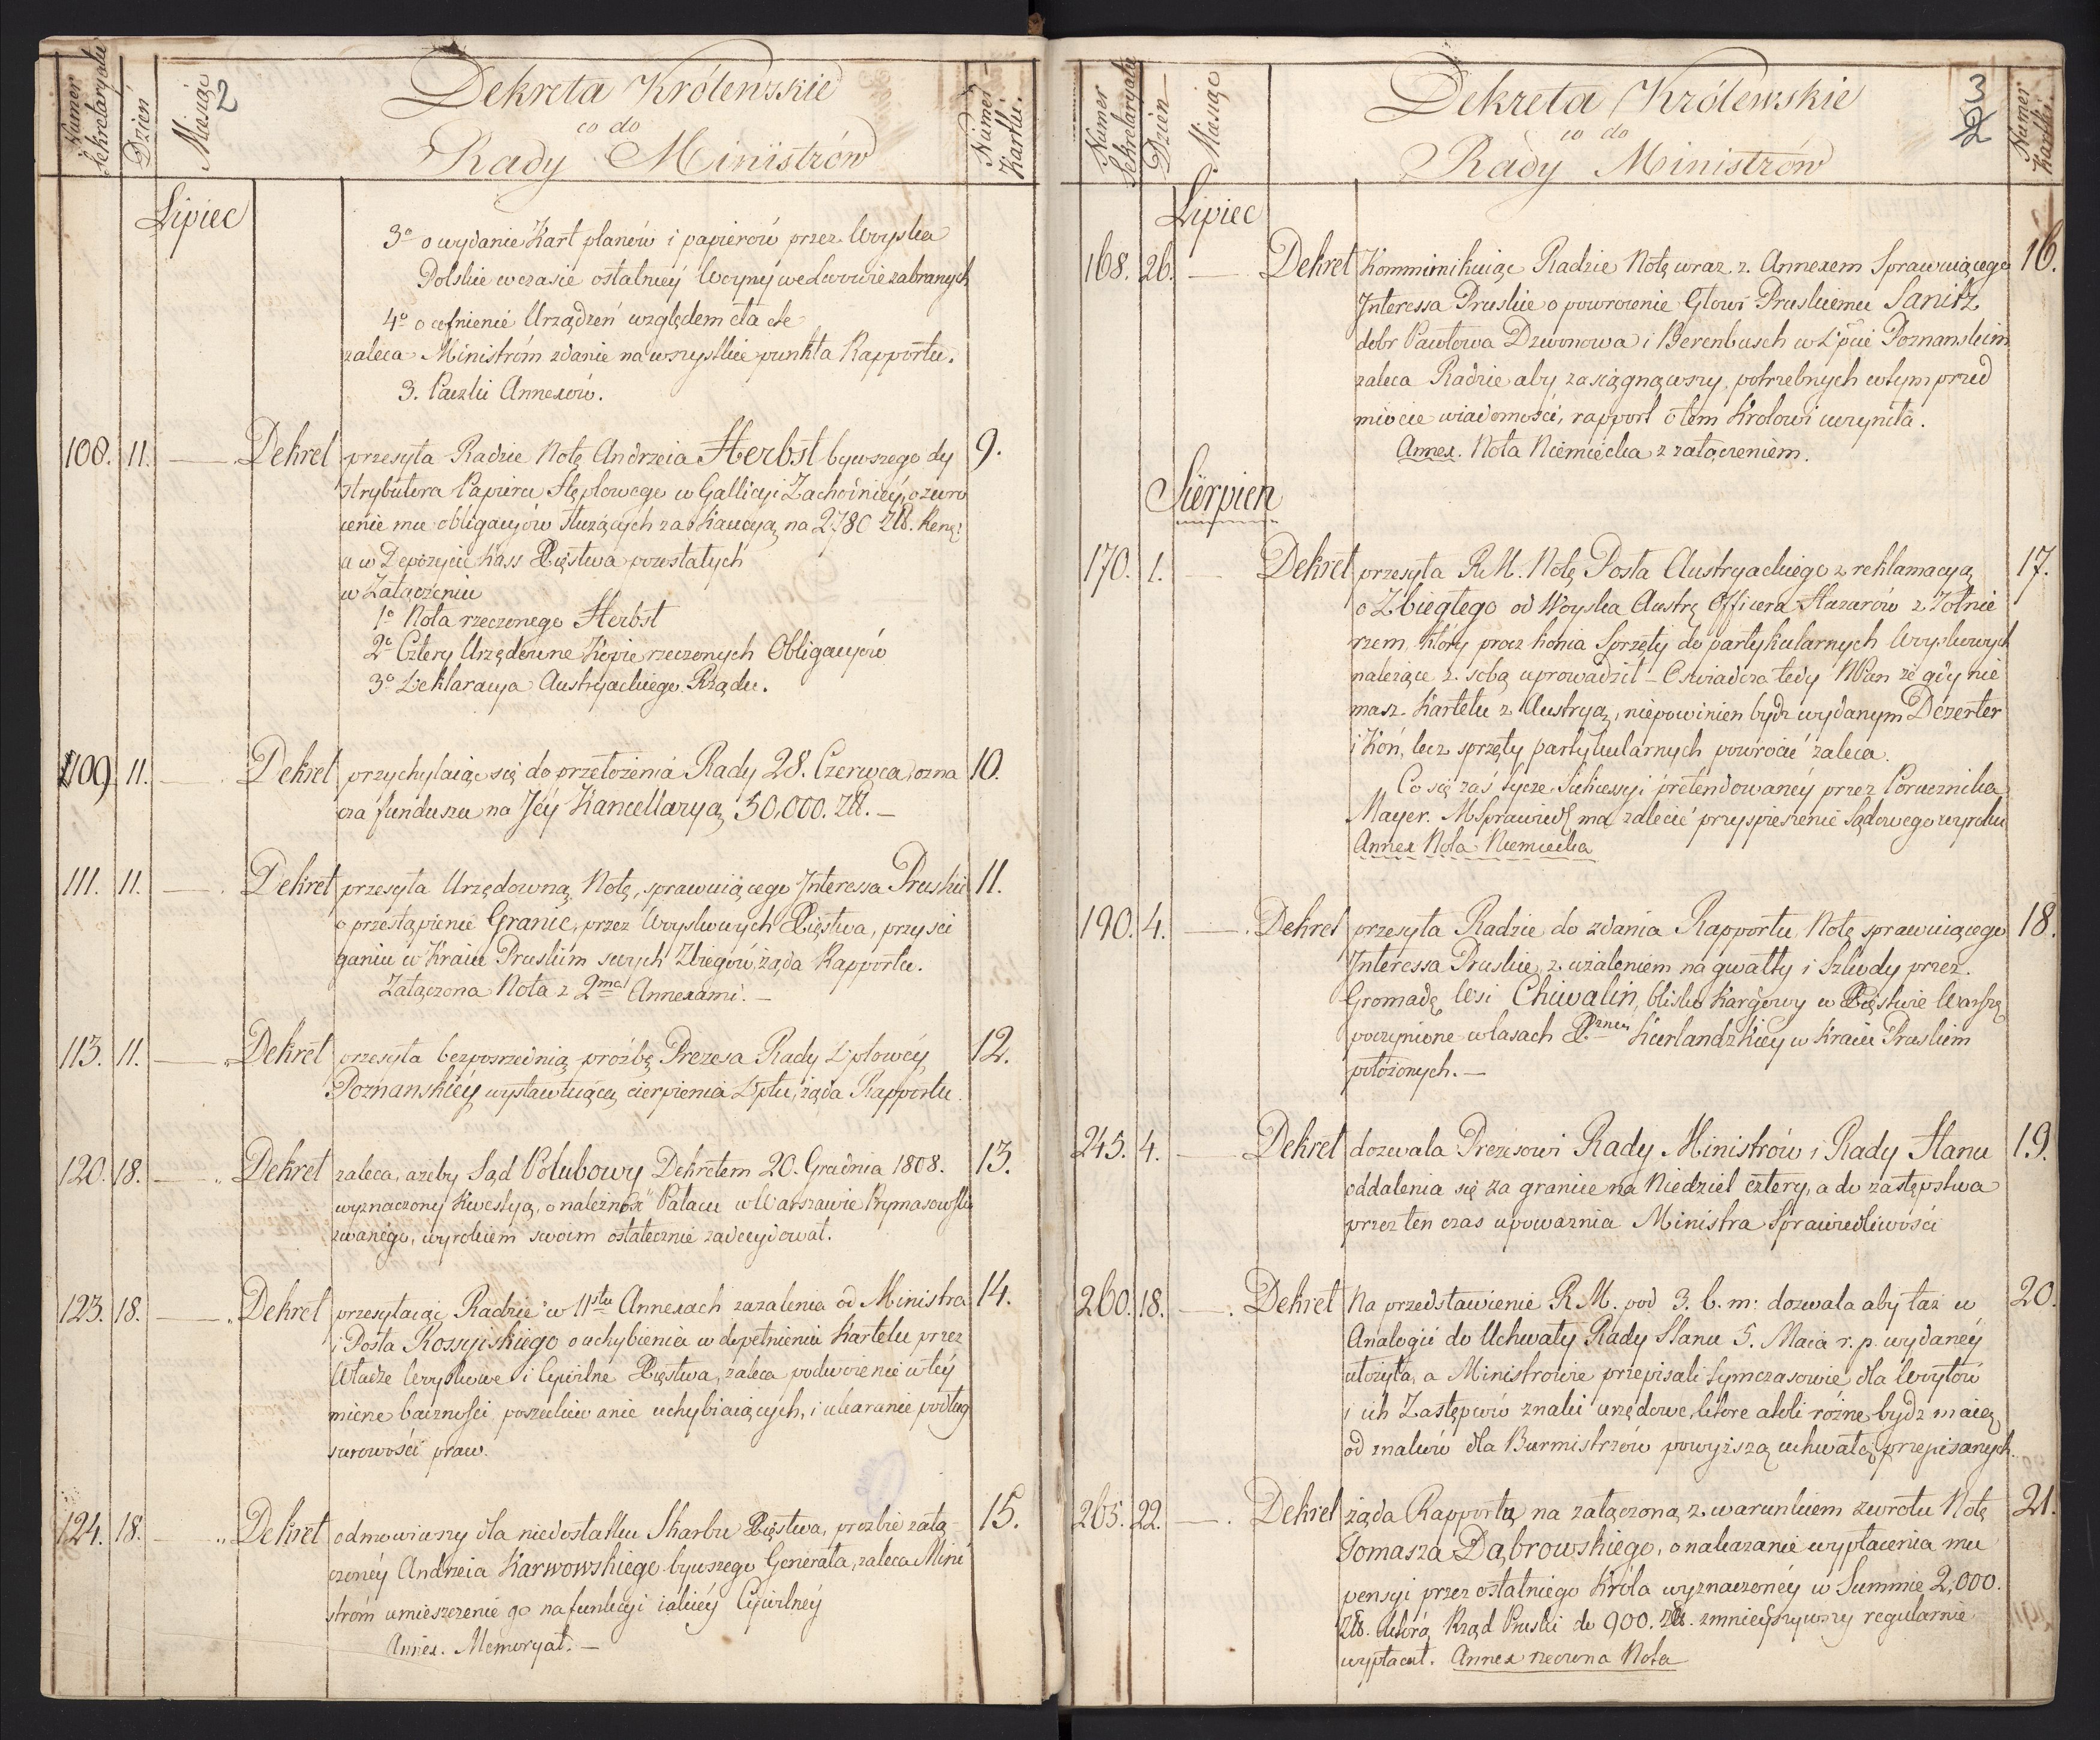 Numer Sekretaryatu
Dzień
Miesiąc
2
Dekreta Królewskie
co do
Rady Ministrów
Numer Kartki.
Lipiec
3º o wydanie Kart planów i papierów przez Woyska
Polskie w czasie ostatniey Woyny we Lwowie zabranych
4º o cofnienie Urządzeń względem cła etc
zaleca Ministróm zdanie na wszystkie punkta Rapportu.
3. Paczki Annexów.
108. 11. — Dekret przesyła Radzie Notę Andrzeia Herbst bywszego dy 9.
strybutora Papieru stęplowego w Gallicyi Zachodniey, o zwro
cenie mu obligacyów służących za Kaucyą na 2780 Złł. Reng:
a w Depozycie Kass Xięstwa pozostałych
w Załączeniu
1º Nota rzeczonego Herbst
2º Cztery Urzędowne Kopie rzeczonych Obligacyów
3º Deklaracya Austryackiego Rządu.
109 11. — Dekret przychylaiąc się do przełożenia Rady 28. Czerwca, ozna 10.
cza fundusz na Jéy Kancellaryą 50,000. Złł. —
111. 11. — Dekret przesyła Urzędowną Notę, sprawuiącego Interessa Pruskie 11.
o przestąpienie Granic, przez Woyskowych Xięstwa, przy ści
ganiu w Kraiu Pruskim swych Zbiegów, żąda Rapportu.
Załączona Nota z 2ma Annexami. —
113. 11. — Dekret przesyła bezpośrzednią prożbę Prezesa Rady Dptowéy 12.
Poznanskiéy wystawuiącą cierpienia Dptu, żąda Rapportu.
120. 18. — Dekret zaleca, ażeby Sąd Polubowy Dekretem 20. Grudnia 1808. 13.
wyznaczony Kwestyą, o należność Pałacu w Warszawie Prymasowski
zwanego, wyrokiem swoim ostatecznie zadecydował.
123. 18. — Dekret przesyłaiąc Radzie w 11stu Annexach zażalenia od Ministra 14.
i Posła Rossyiskiego o uchybienia w dopełnieniu Kartelu przez
Władze Woyskowe i Cywilne Xięstwa, zaleca podwoienie w téy
mierze baczności, poszukiwanie uchybiaiących, i ukaranie podług
surowości praw.
124. 18. — Dekret odmowiwszy dla niedostatku Skarbu Xięstwa, prozbie załą- 15.
czonéy Andrzeia Karwowskiego bywszego Generała, zaleca Mini
stróm umieszczenie go na funkcyi iakiéy Cywilnéy
Annex. Memoryał. —
Numer Sekretaryatu
Dzień
Miesiąc
Dekreta Królewskie
co do
Rady Ministrów
3
2
Numer Kartki.
Lipiec
168. 26. — Dekret Kommunikuiąc Radzie Notę wraz z Annexem Sprawuiącego 16.
Interessa Pruskie o powrocenie Głowi Pruskiemu Sanitz
dobr Pawłowa Dzwonowa i Berenbusch w Dpcie Poznanskim
zaleca Radzie aby zasiągnąwszy, potrzebnych w tym przed
miocie wiadomości, rapport o tem Krolowi uczyniła.
Annex. Nota Niemiecka z załączeniem.
Sierpien
170. 1. — Dekret przesyła R.M. Notę Posła Austryackiego z reklamacyą 17.
o Zbiegłego od Woyska Austrę Officera Huzarów z Zołnie
rzem, który procz konia Sprzęty do partykularnych Woyskowych
należące z sobą uprowadził — Oswiadcza tedy NPan że gdy nie
masz Kartelu z Austryą, niepowinien bydz wydanym Dezerter
i Koń, lecz sprzęty partykularnych powrocić zaleca.
Co się zaś tycze Sukcessyi pretendowanéy przez Porucznika
Mayer. MSprawiedl ma zalecić przyspieszenie Sądowego wyroku
Annex Nota Niemiecka
190. 4. — Dekret przesyła Radzie do zdania Rapportu, Notę sprawuiącego 18.
Interessa Pruskie, z użaleniem na gwałty i Szkody przez
Gromadę Wsi Chwalin, blisko Kargowy w Xięstwie Warszą
poczynione w lasach X.żnéy Kurlandzkiey w Kraiu Pruskim
położonych. —
245. 4. — Dekret dozwala Prezesowi Rady Ministrów i Rady Stanu 19.
oddalenia się za granice na Niedziel cztery, a do zastępstwa
przez ten czas upoważnia Ministra Sprawiedliwości
260. 18. — Dekret Na przedstawienie R.M. pod 3. b. m: dozwala aby taż w 20.
Analogii do Uchwały Rady Stanu 5. Maia r. p. wydanéy
ułożyła, a Ministrowie przepisali tymczasowie dla Woytów
i ich Zastępców znaki urzędowe, które atoli różne bydz maią
od znaków dla Burmistrzów powyższą uchwałą przepisanych.
265. 22. — Dekret żąda Rapportu na załączoną z warunkiem zwrotu Notę 21.
Tomasza Dąbrowskiego, o nakazanie wypłacenia mu
pensyi przez ostatniego Króla wyznaczonéy w Summie 2,000.
Złł. którą Rząd Pruski do 900. Złł. zmnieyszywszy regularnie
wypłacał. Annex rzeczona Nota